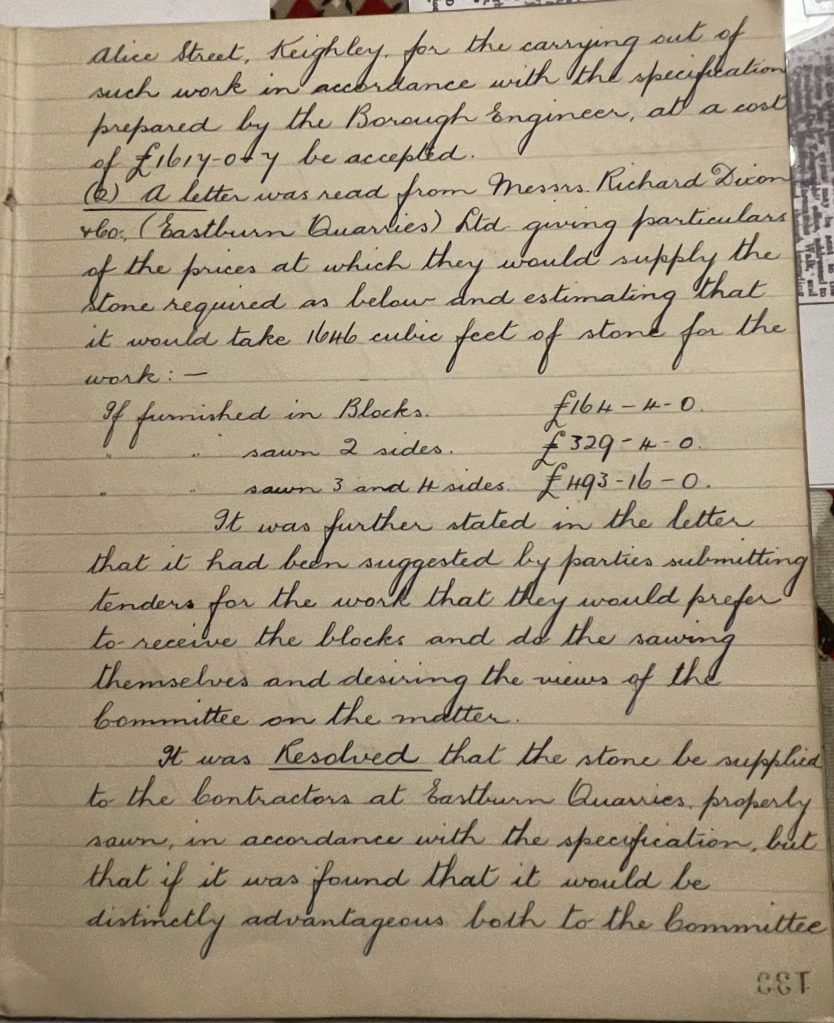 Alice Street, Keighley, for the carrying out of
such work in accordance with the specification
prepared by the Borough Engineer, at a cost
of £1617-0-7 be accepted.
(2) A letter was read from Messrs. Richard Dixon
& Co., (Eastburn Quarries) Ltd. giving particulars
of the prices at which they would supply the
stone required as below and estimating that
it would take 1646 cubic feet of stone for the
work: —
If furnished in Blocks. £164-4-0.
" " sawn 2 sides. £329-4-0.
" " sawn 3 and 4 sides. £493-16-0.
It was further stated in the letter
that it had been suggested by parties submitting
tenders for the work that they would prefer
to receive the blocks and do the sawing
themselves and desiring the views of the
Committee on the matter.
It was Resolved that the stone be supplied
to the Contractors at Eastburn Quarries, properly
sawn, in accordance with the specification, but
that if it was found that it would be
distinctly advantageous both to the Committee
133